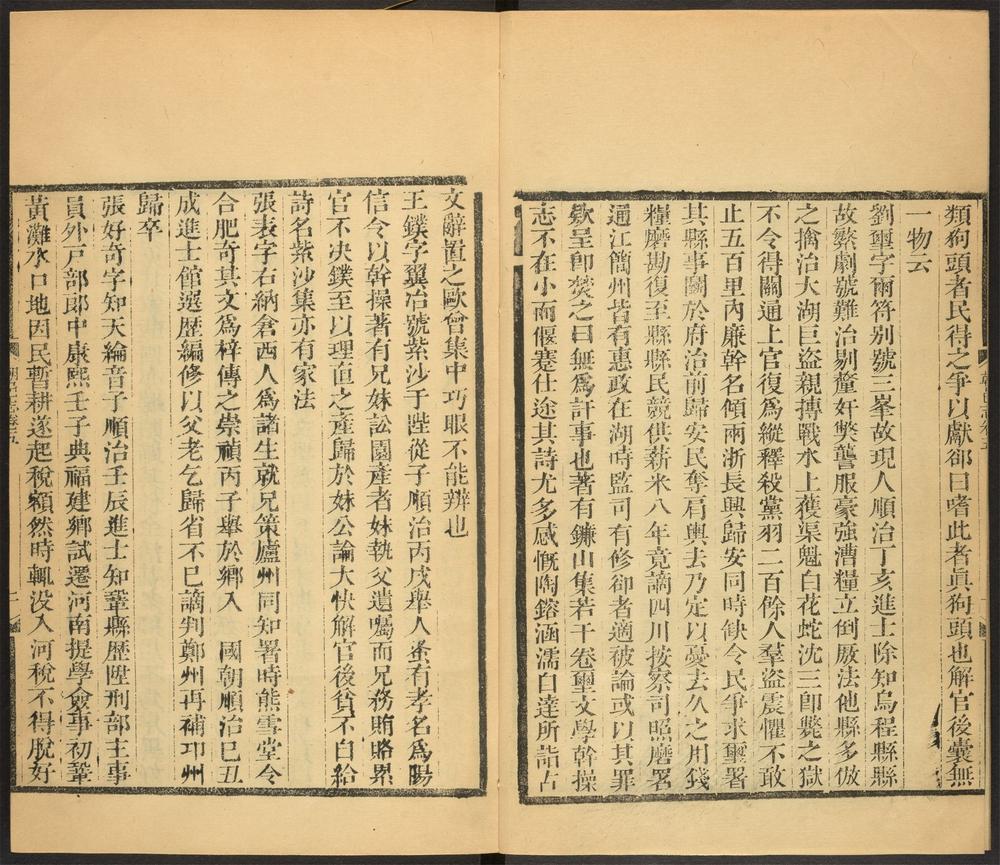 類狗頭者民得之爭以獻卻曰嗜此者眞狗頭也解官後囊無
一物云
劉璽字爾符别號三峯故現人順治丁亥進士除知烏程縣縣
故繁劇號難治剔釐奸獘讋服豪強漕糧立倒厫法他縣多倣
之擒治大湖巨盜親搏戰水上獲渠魁白花蛇沈三卽斃之獄
不令得關通上官復爲縱釋殺黨羽二百餘人羣盜震懼不敢
止五百里內廉幹名傾兩浙長興歸安同時缺令民爭求璽署
其縣事鬭於府治前歸安民奪肩輿去乃定以憂去久之用錢
糧磨勘復至縣縣民競供薪米八年竟謫四川按察司照磨署
通江簡州皆有惠政在湖時監司有修卻者適被論或以其罪
欵呈卽焚之曰無爲訐事也著有鐮山集若干卷璽文學幹操
志不在小而偃蹇仕途其詩尤多感慨陶鎔涵濡自達所詣古
文辭置之歐曾集中巧眼不能辨也
王鏷字翼冶號紫沙于陛從子順治丙戌舉人素有孝名爲陽
信令以幹操著有兄妹訟園產者妹執父遺囑而兄務賄賂累
官不决鏷至以理直之產歸於妹公論大快解官後貧不自給
詩名紫沙集亦有家法
張表字右納倉西人爲諸生就兄策廬州同知署時熊雪堂令
合肥奇其文爲梓傳之崇禎丙子舉於鄉入 國朝順治己丑
成進士館選歷編修以父老乞歸省不已謫判鄭州再補邛州
歸卒
張好奇字知天綸音子順治壬辰進士知鞏縣歷陞刑部主事
員外戸部郎中康熙壬子典福建鄉試遷河南提學僉事初鞏
黃灘水口地因民暫耕遂起稅額然時輒没入河稅不得脫好